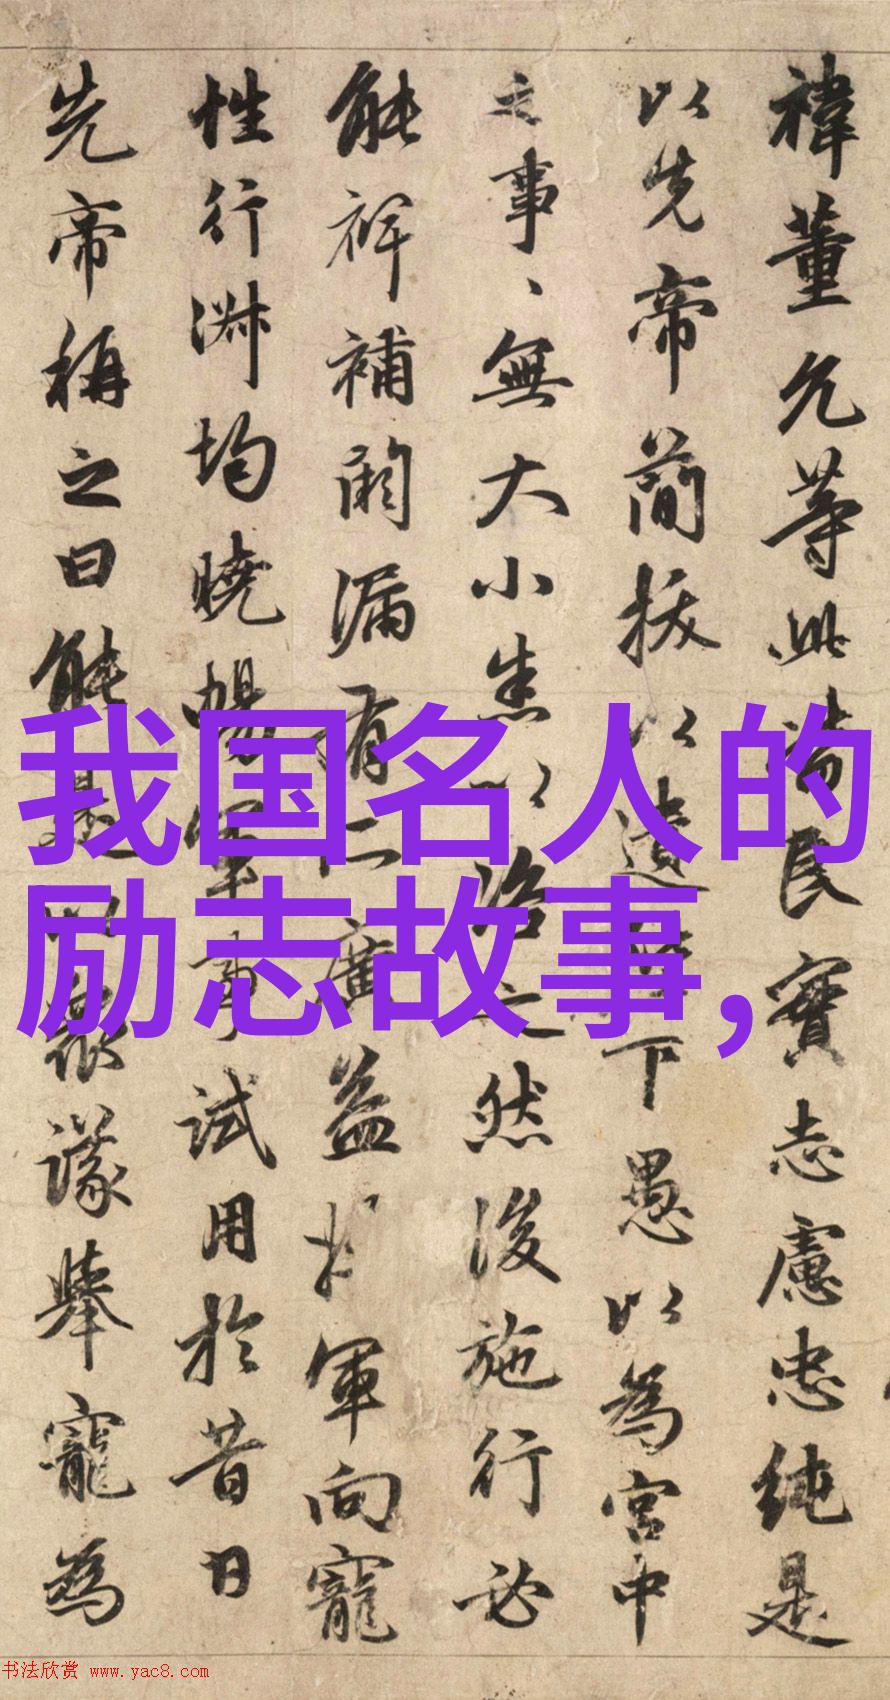 禕董允等此皆良實志慮忠純是
以先帝簡拔以遺陛下愚以為宮中
之事、無大小悉以咨之然後施行必
能裨補闕漏有所廣益將軍向寵
性行淑均曉暢軍事試用於昔日
先帝稱之曰能是以眾議舉寵為
我国名人的
励志故事,
书法欣赏 www.yac8.com